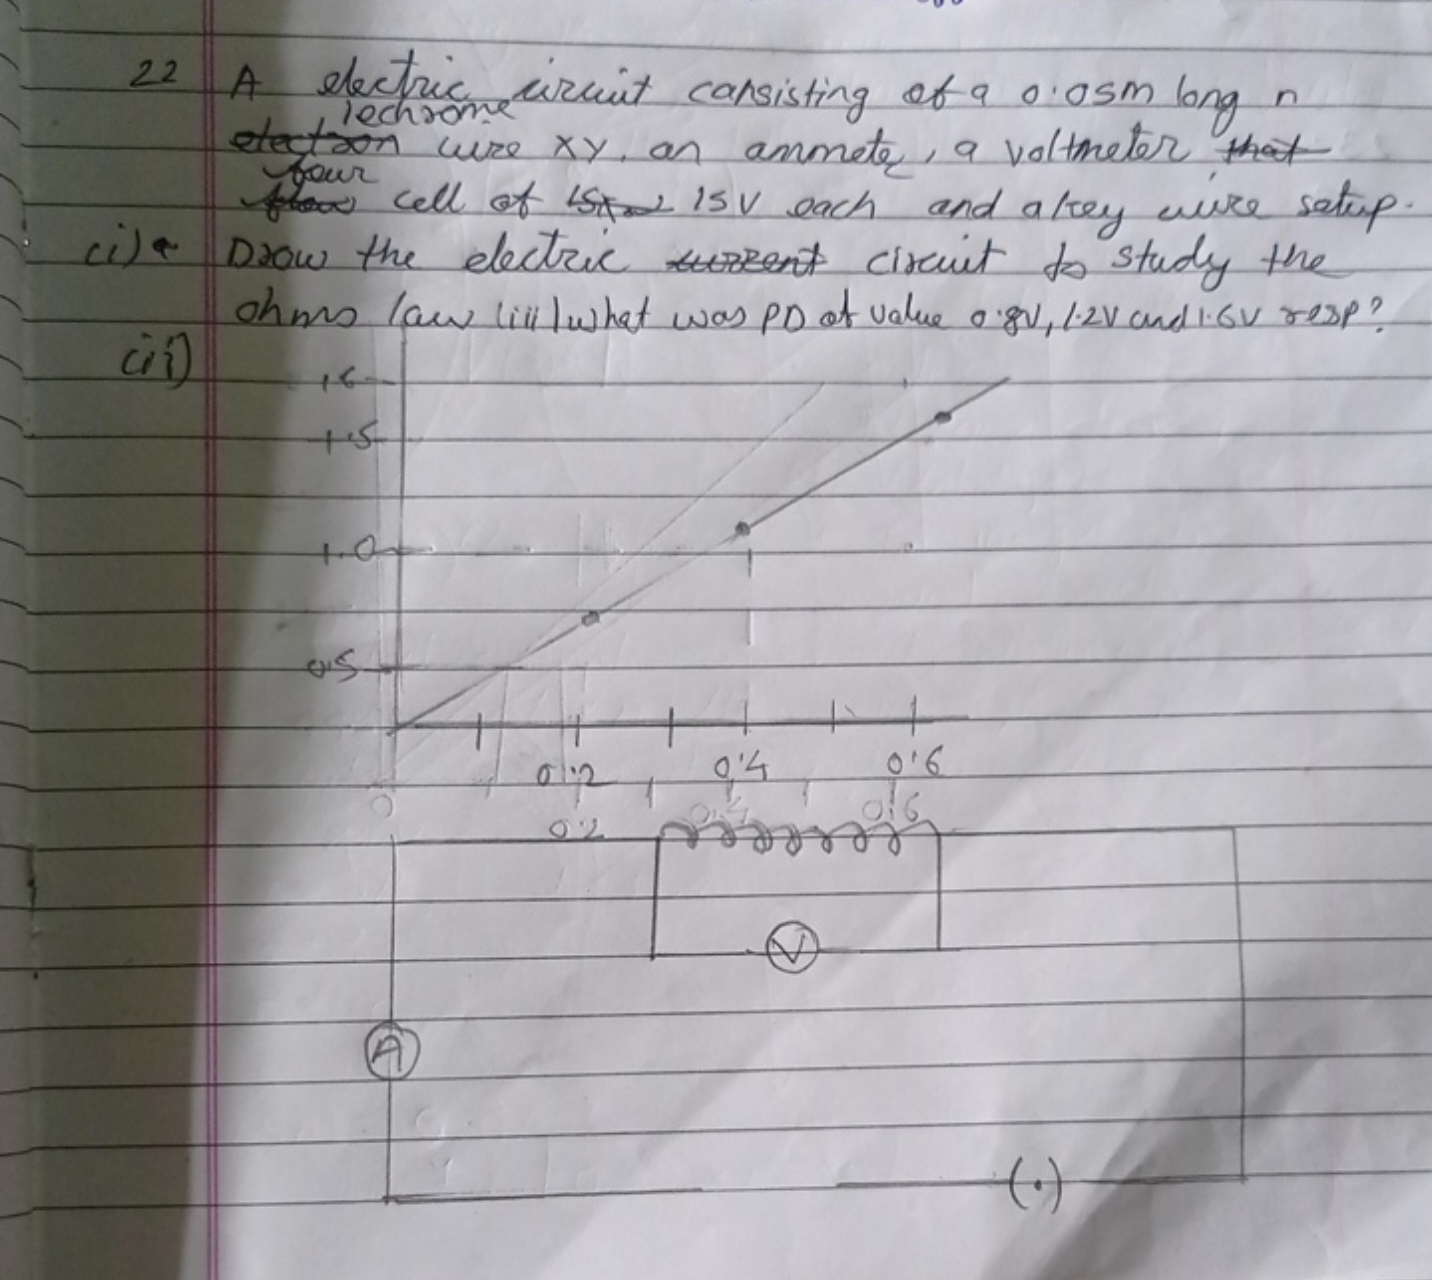 22 A electric circuit consisting of a 0.05m long n
iechrome
electron wire XY, an ammete, a voltmeter that
four
cell of 15V each and a key wire setup.
(i) Draw the electric current circuit to study the
ohms law (iii) what was PD at value 0.8V, 1.2V and 1.6V resp?
(ii)
1.6
1.5
1.0
0.5
0.2 0.4 0.6
0 0.4 0.6
0.2
V
A
(.)